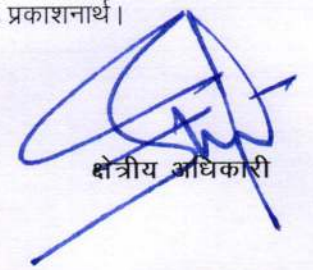 प्रकाशनार्थ।
क्षेत्रीय अधिकारी